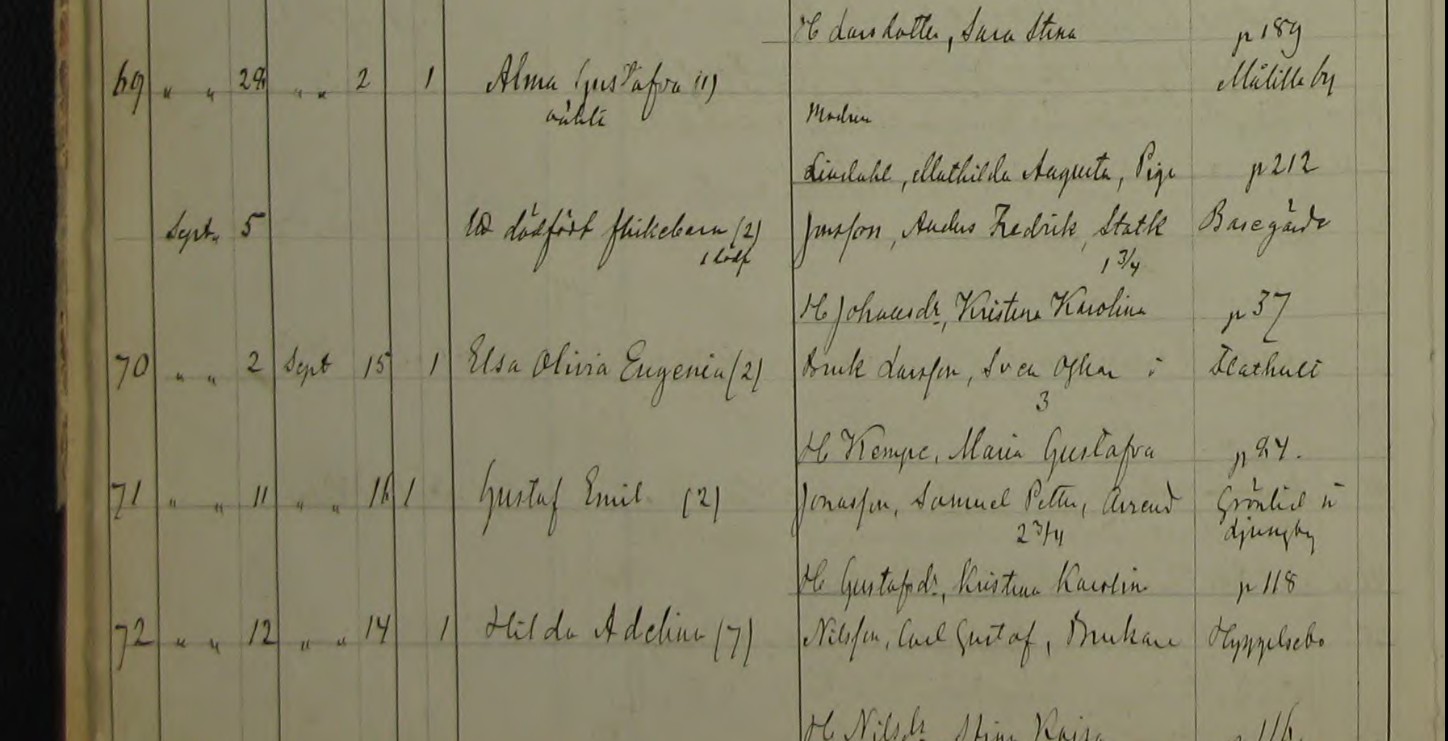 H Larsdotter, Sara Stina p 189
69 " " 28 " " 2 1 Alma Gustafva (1) Målilla by
oäkta Modren
Lindahl, Mathilda Augusta, Piga p 212
Sept. 5 dödfödt flickebarn (2) Jonsson, Anders Fredrik, Statk Basegärde
1 dödf 1 3/4
H Johansdr, Kristina Karolina p 37
70 " " 2 Sept 15 1 Elsa Olivia Eugenia (2) Bruk Larsson, Sven Oskar i Flathult
3
H Kempe, Maria Gustafva p 84.
71 " " 11 " " 16 1 Gustaf Emil (2) Jonasson, Samuel Petter, Arrend Grönlid u
2 3/4 Ljungby
H Gustafsdr, Kristina Karolin p 118
72 " " 12 " " 14 1 Hilda Adelina (7) Nilsson, Carl Gustaf, Brukare Hyggelsebo
H Nilsdr Stina Kajsa p 116